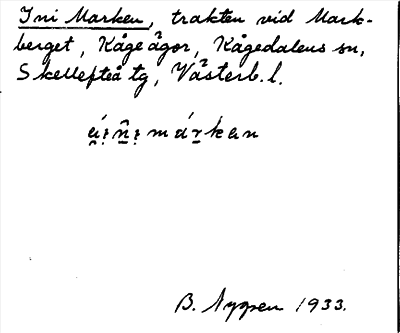 Ini Marken, trakten vid Mark-
berget, Kåge ågor, Kågedalens sn,
Skellefteå tg, Västerb. l.
B. Nygren 1933.